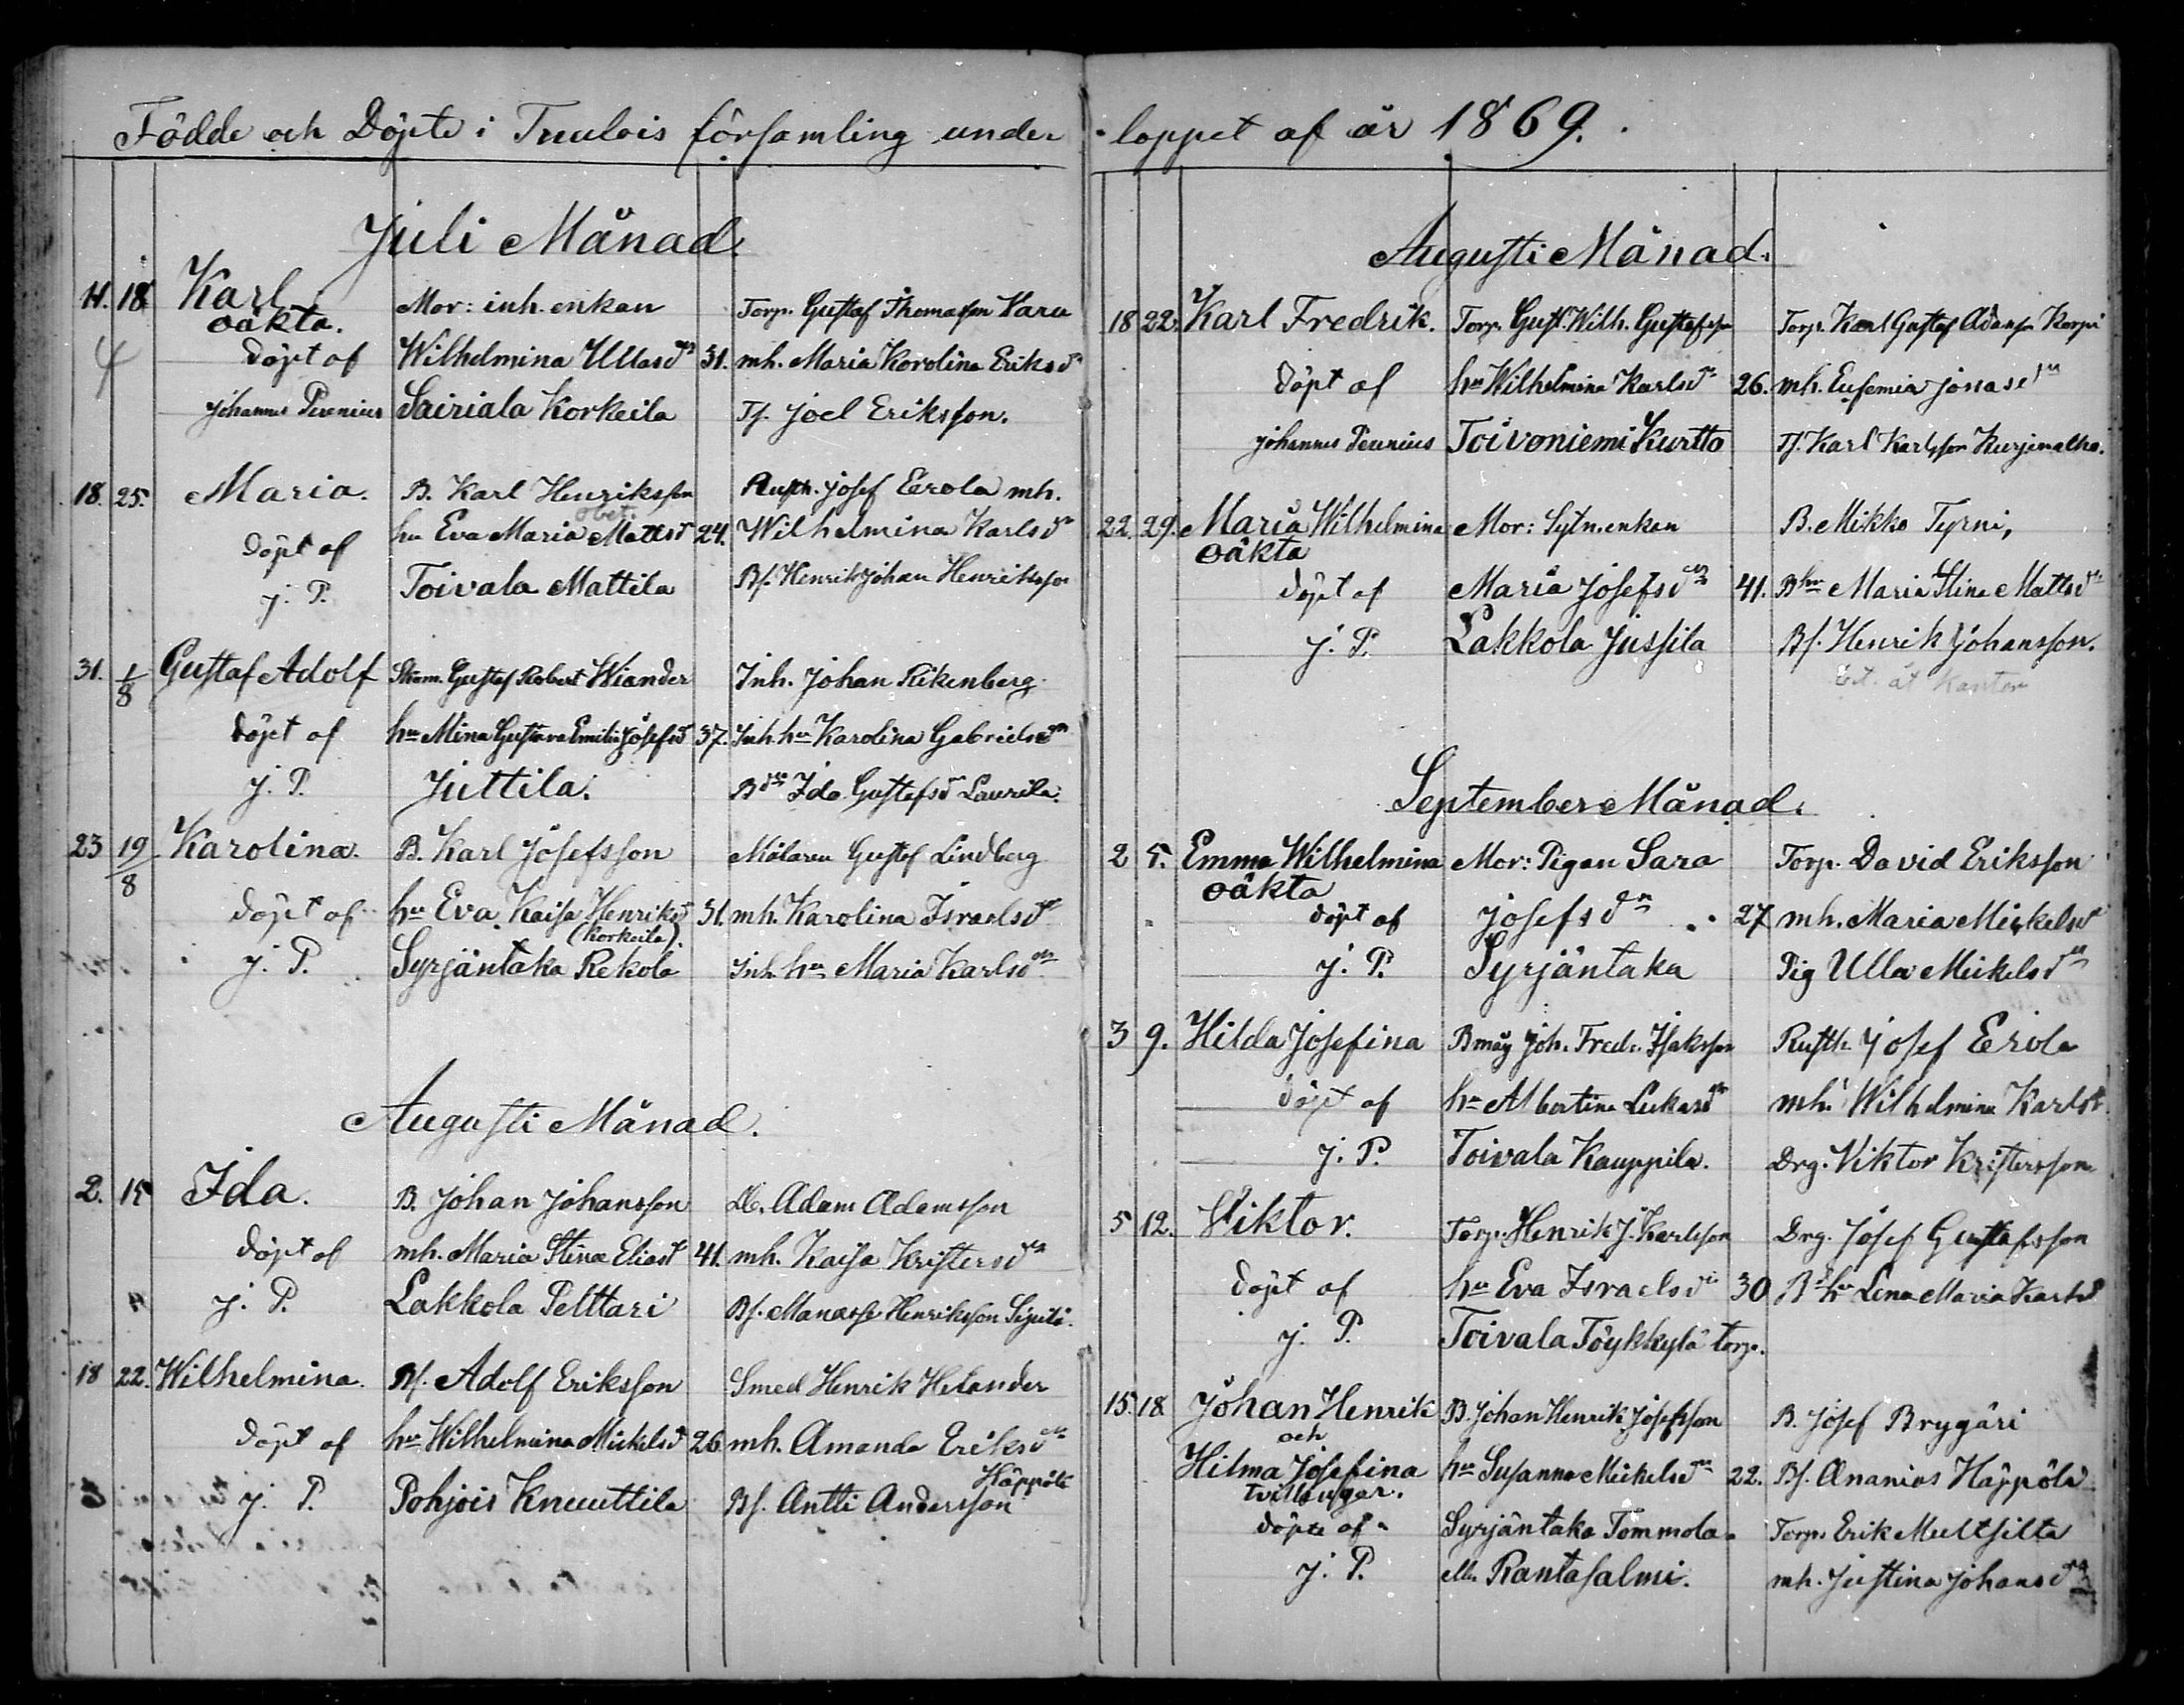 Födde och Döpte i Tuulois församling under loppet af år 1869.
Juli Månad.
11. 18 Karl Mor: inh. enkan Torp. Gustaf Thomasson Vara
oäkta.
döpt af Wilhelmina Ullasdr 31. mh. Maria Karolina Eriksdr
Johannes Perenius Sairiala Korkeila Tf. Joel Eriksson.
18. 25. Maria. B. Karl Henriksson Rusth. Josef Eerola mh.
obet.
döpt af hu Eva Maria Mattsd 24. Wilhelmina Karlsdr
J. P. Toivala Mattila Bs. Henrik Johan Henriksson
31. 1/8 Gustaf Adolf Gustaf Robert Wiander Inh. Johan Rikenberg
döpt af hu Mina Gustava Emilia Josefsd 37. Inh. hu Karolina Gabrielsdr
J. P. Juttila. Bdr Ida Gustafsdr Laurila.
23 19/8 Karolina. B. Karl Josefsson Målaren Gustaf Lindberg
döpt af hu Eva Kaisa Henriksd 31. mh. Karolina Israelsdr
(Korkeila)
J. P. Syrjäntaka Rekola Inh. hu Maria Karlsdr
Augusti Månad.
2. 15 Ida. B. Johan Johansson Adam Adamsson
döpt af mh. Maria Stina Eliasd 41. mh. Kaisa Kristersdr
J. P. Lakkola Pelttari Bs. Manasse Henriksson
18 22. Wilhelmina. Bs. Adolf Eriksson Smed Henrik Helander
döpt af hu Wilhelmina Mickelsd 26. mh. Amanda Eriksdr
Häppölä
J. P. Pohjois Knuuttila Bs. Antti Andersson
Augusti Månad.
18 22. Karl Fredrik. Torp. Gust. Wilh. Gustafsson Torp. Karl Gustaf Adamsson Korpi
döpt af hu Wilhelmina Karlsdr 26. mh. Eufemia Jonasdr
Johannes Perenius Toivoniemi Kurtto Tf. Karl Karlsson Kurjenalho.
22. 29. Maria Wilhelmina Mor: Sytn. enkan B. Mikko Tyrni,
oäkta
döpt af Maria Josefsdr 41. Bhu Maria Stina Mattsdr
J. P. Lakkola Jussila Bs. Henrik Johansson.
åt Kantor
September Månad.
2 5. Emma Wilhelmina Mor: Pigan Sara Torp. David Eriksson
oäkta
döpt af Josefsdr 27 mh. Maria Mickelsd
J. P. Syrjäntaka Pig Ulla Mickelsdr
3 9. Hilda Josefina Bmåg Joh. Fredr. Isaksson Rusth. Josef Erola
döpt af hu Albertina Lukasdr mh. Wilhelmina Karlsd.
J. P. Toivala Kauppila. Drg. Viktor Kristersson
5 12. Viktor. Torp. Henrik J. Karlsson Drg. Josef Gustafsson
döpt af hu Eva Israelsdr 30 Bshu Lena Maria Karlsd
J. P. Toivala Töykkylä torp.
15. 18 Johan Henrik B. Johan Henrik Josefsson B. Josef Brygäri
och
Hilma Josefina hu Susanna Mickelsdr 22. Bs. Ananias Häppölä
tvillingar.
döpte af Syrjäntaka Tommola Torp. Erik Multsilta
J. P. ell. Rantasalmi. mh. Justina Johansdr